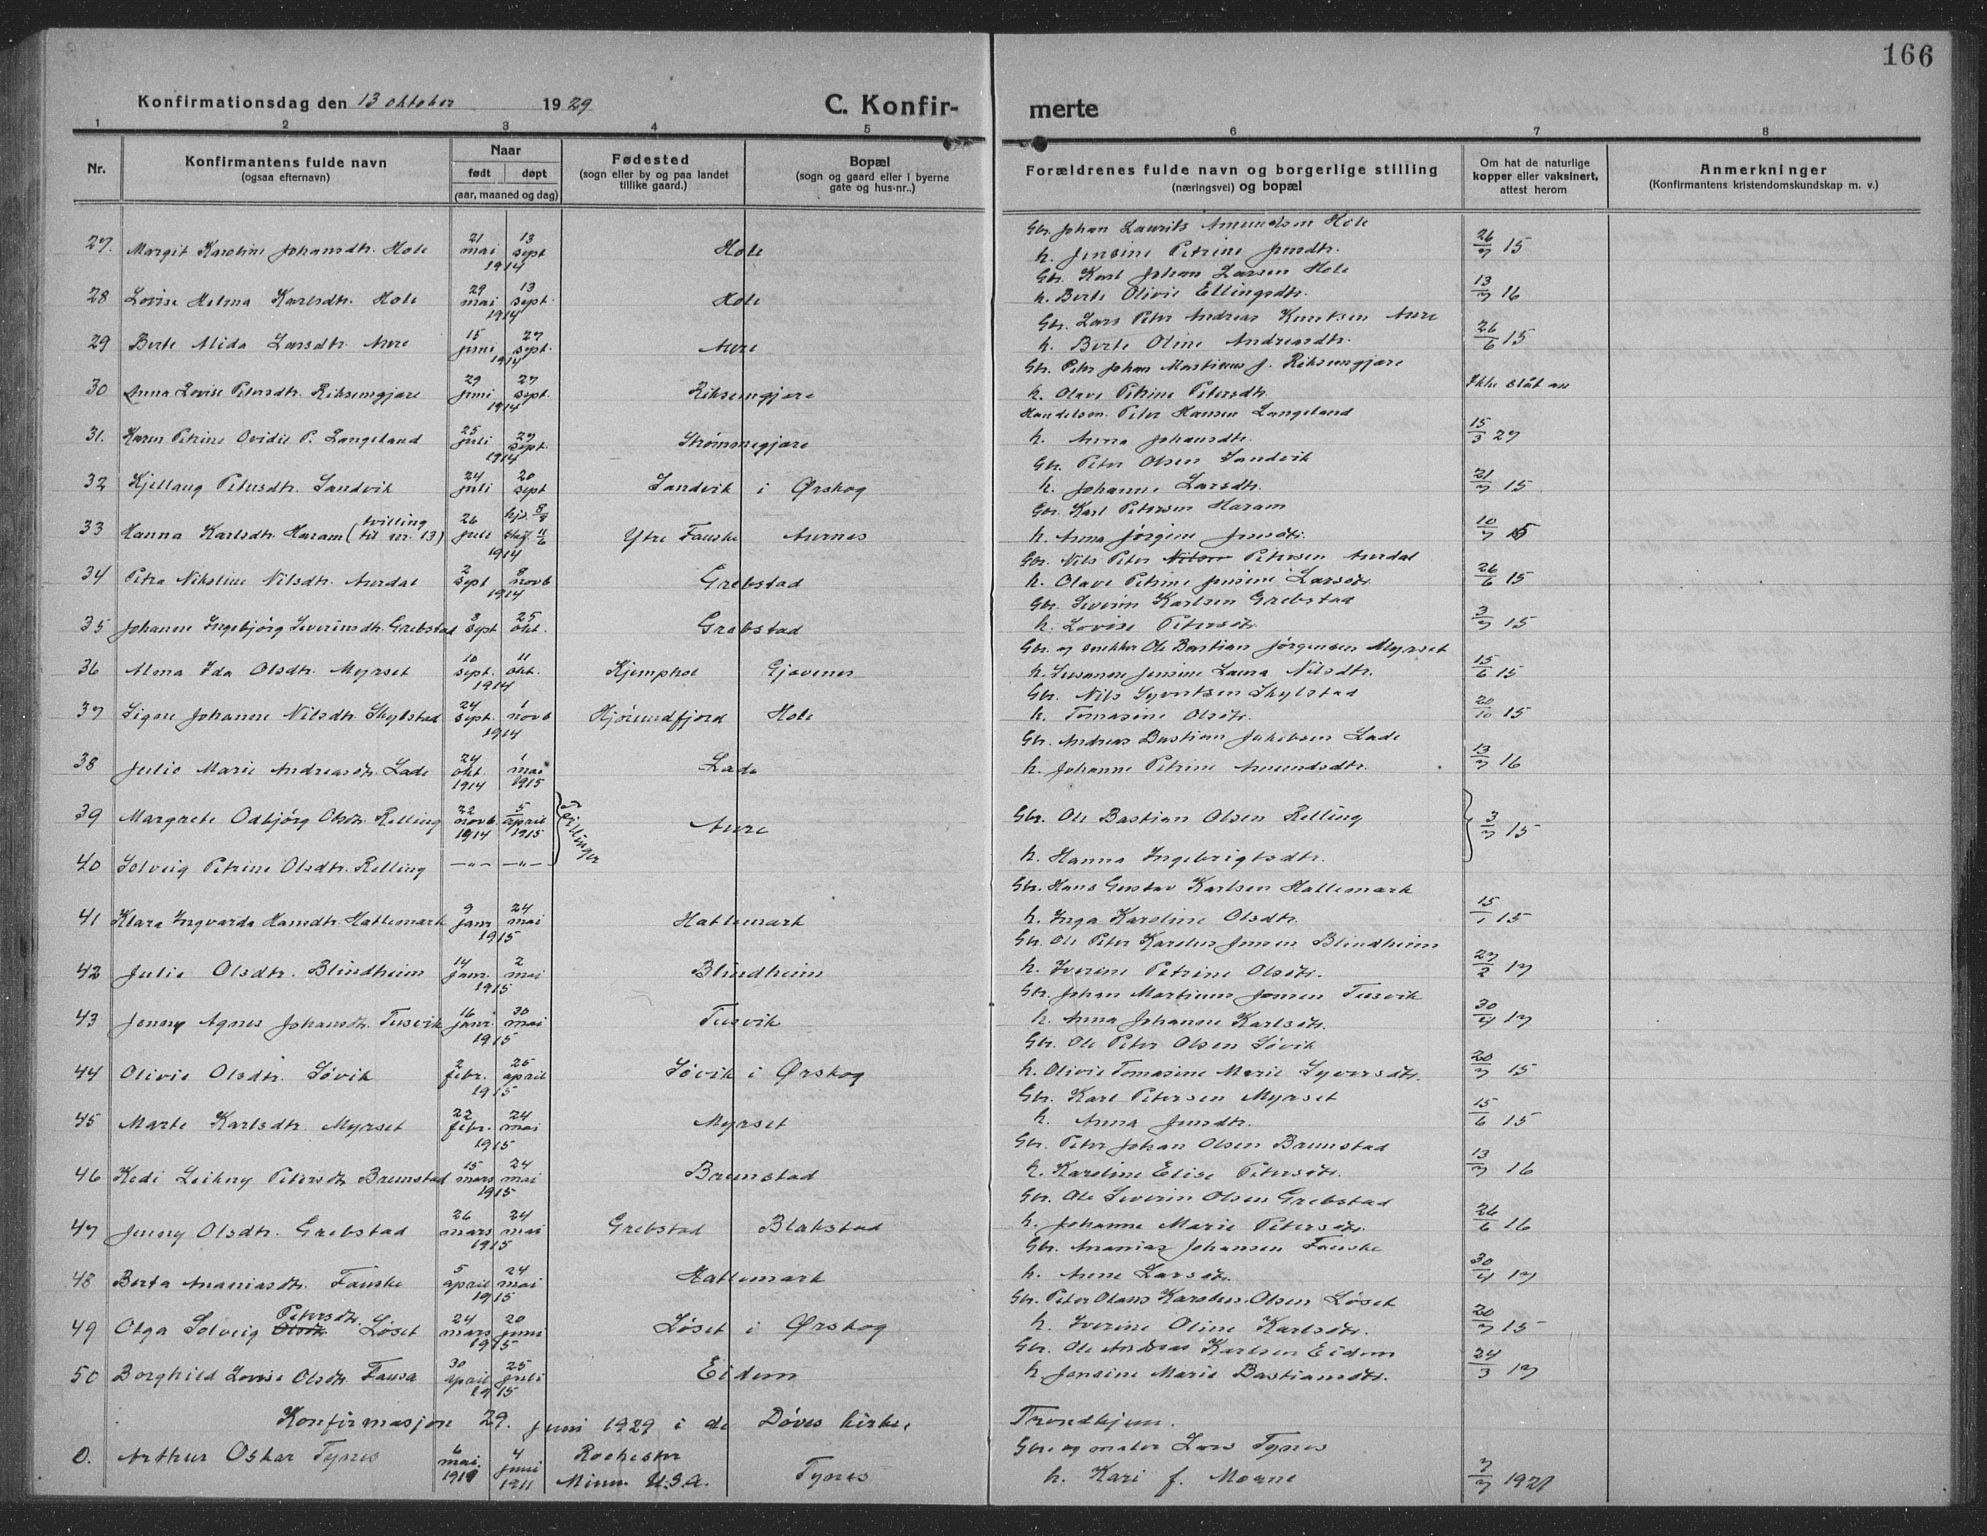 166
Konfirmationsdag den 13 oktober 1929 C. Konfir- merte
1 2 3 4 5 6 7 8
Nr. Konfirmantens fulde navn (ogsaa efternavn) Naar født døpt (aar, maaned og dag) Fødested (sogn eller by og paa landet tillike gaard.) Bopæl (sogn og gaard eller i byerne gate og hus-nr..) Forældrenes fulde navn og borgerlige stilling (næringsvei) og bopæl Om hat de naturlige kopper eller vaksinert, attest herom Anmerkninger (Konfirmantens kristendomskundskap m. v.)
27. Margit Karoline Johansdtr. Hole 21 mai 13 sept 1914 Hole Gbr. Johan Laurits Amundsen Hole h. Jensine Petrine Jensdtr. 26/7 15
28 Lovise Helma Karlsdtr. Hole 29 mai 13 sept. 1914 Hole Gbr. Karl Johan Larsen Hole h. Berte Olivie Ellingsdtr. 13/7 16
29 Berte Alida Larsdtr. Aure 15 juni 27 sept. 1914 Aure Gbr. Lars Peter Andreas Knutsen Aure h. Berte Oline Andreasdtr. 26/6 15
30 Anna Lovise Petersdtr. Riksemgjære 29 juni 27 sept. 1914 Riksemgjære Gbr. Peter Johan Martinus J. Riksemgjære h. Olave Petrine Petersdtr. Ikke slåt an
31. Karen Petrine Ovidie P. Langeland 25 juli 27 sept. 1914 Strømmegjære Handelsm. Peter Hansen Langeland h. Anna Johansdtr. 15/3 27
32 Kjellaug Petersdtr. Sandvik 24 juli 20 sept 1914 Sandvik i Ørskog Gbr. Peter Olsen Sandvik h. Johanne Larsdtr. 21/7 15
33 Hanna Karlsdtr. Haram (tvilling til nr. 13) 26 juli hjd. 8/8 1914 Ytre Fauske Aurnes Gbr. Karl Petersen Haram h. Anna Jørgine Jensdtr. 10/7 15
34 Petra Nikoline Nilsdtr. Aurdal 2 sept 8 novb 1914 Grebstad Gbr. Nils Peter Nilsen Petersen Aurdal h. Olave Petrine Jensine Larsdtr. 26/6 15
35 Johanne Ingebjørg Severinsdtr. Grebstad 3 sept 25 okt. Grebstad Gbr. Severin Karlsen Grebstad h. Lovise Petersdtr. 3/7 15
36 Alma Ida Olsdtr. Myrset 10 sept. 11 okt. 1914 Kjemphol Gjævenes Gbr. og snikker Ole Bastian Jørgensen Myrset h. Susanne Jensine Laura Nilsdtr. 15/6 15
37 Signe Johanne Nilsdtr Skylstad 24 sept. 1 novb 1914 Hjørundfjord Hole Gbr. Nils Syvertsen Skylstad h. Tomasine Olsdtr. 20/10 15
38 Julie Marie Andreasdtr. Lade 24 okt. 1914 1 mai 1915 Lade Gbr. Andreas Bastian Jakobsen Lade h. Johanne Petrine Amundsdtr. 13/7 16
39 Margrete Odbjørg Olsdtr. Relling 22 novb. 1914 5 april 1915 Tvillinger Aure Gbr. Ole Bastian Olsen Relling 3/7 15
40 Solveig Petrine Olsdtr. Relling —"— —"— h. Hanna Ingebrigtsdtr.
41 Klara Ingvarda Hansdtr. Hattemark 9 jan. 24 mai 1915 Hattemark Gbr. Hans Gustav Karlsen Hattemark h. Inga Karoline Olsdtr. 15/1 15
42 Julie Olsdtr. Blindheim 14 jan. 2 mai 1915 Blindheim Gbr. Ole Peter Karolus Jensen Blindheim h. Iverine Petrine Olsdtr. 27/2 17
43 Jenny Agnes Johansdtr. Tusvik 16 jan. 30 mai 1915 Tusvik Gbr. Johan Martinus Jonsen Tusvik h. Anna Johanne Karlsdtr. 30/4 17
44 Olivie Olsdtr. Søvik 2 febr. 25 april 1915 Søvik i Ørskog Gbr. Ole Peter Olsen Søvik h. Olivie Tomasine Marie Syversdtr. 20/7 15
45 Marte Karlsdtr. Myrset 22 febr. 24 mai 1915 Myrset Gbr. Karl Petersen Myrset h. Anna Jensdtr. 15/6 15
46 Hedi Leikny Petersdtr Brunstad 15 mars 24 mai 1915 Brunstad Gbr. Peter Johan Olsen Brunstad h. Karoline Elise Petersdtr. 13/7 16
47 Jenny Olsdtr. Grebstad 26 mars 24 mai 1915 Grebstad Blakstad Gbr. Ole Severin Olsen Grebstad h. Johanne Marie Petersdtr. 26/6 16
48 Berta Ananiasdtr. Fauske 5 april 24 mai 1915 Hattemark Gbr. Ananias Johansen Fauske h. Anne Larsdtr. 30/4 17
49 Olga Solveig Olsdtr Petersdtr. Løset 24 mars 20 juni 1915 Løset i Ørskog Gbr. Peter Olaus Karolus Olsen Løset h. Iverine Oline Karlsdtr. 20/7 15
50 Borghild Lovise Olsdtr. Fausa 30 april 25 juli 1915 Eidem Gbr. Ole Andreas Karlsen Eidem h. Jensine Marie Bastiansdtr. 24/3 17
Konfirmasjon 29. juni 1929 i de Døves kirke, Trondhjem.
0. Arthur Oskar Tynes 6 mai. 1911 4 juni 1911 Rochester Minn. U.S.A. Tynes Gbr. og maler Lars Tynes h. Kari f. Moane 7/7 1921